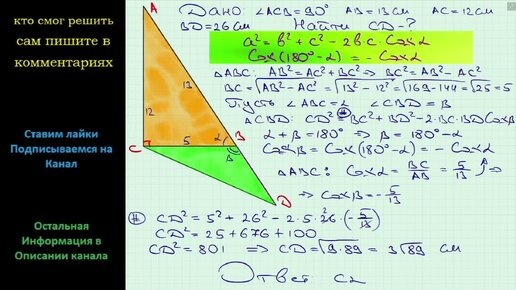 кто смог решить
сам пишите в
комментариях
Ставим лайки
Подписываемся на
Канал
Остальная
Информация в
Описании канала
A
12
13
C
5
α
B
β
D
Дано: ∠ACB=90° AB=13см AC=12см
BD=26см Найти CD-?
a²=b²+c²-2bc·Cosα
Cos(180°-α)=-Cosα
△ABC: AB²=AC²+BC² ⇒ BC²=AB²-AC²
BC=√AB²-AC²=√13²-12²=√169-144=√25=5
Пусть ∠ABC=α ∠CBD=β
△CBD: CD²=BC²+BD²-2·BC·BDCosβ
α+β=180° ⇒ β=180°-α
Cosβ=Cos(180°-α)=-Cosα
△ABC: Cosα=BC/AB=5/13 ⇒
⇒ Cosβ=-5/13
CD²=5²+26²-2·5·26·(-5/13)
CD²=25+676+100
CD²=801 ⇒ CD=√9·89=3√89 см
Ответ